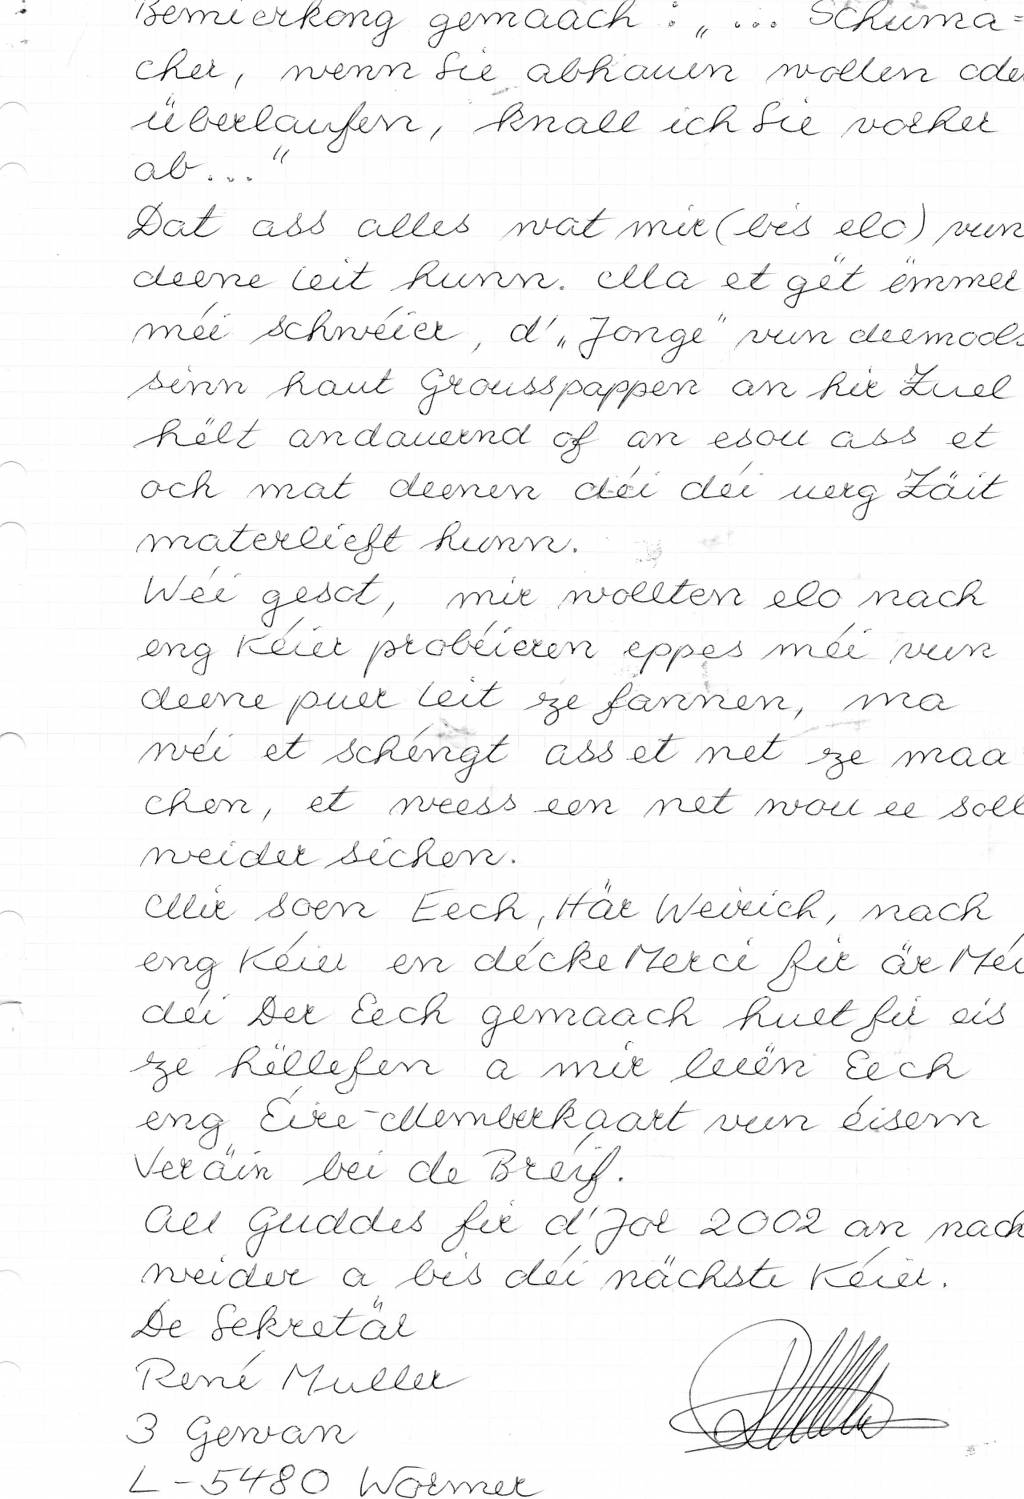 Bemierkong gemaach : „ ... Schuma=
cher, wenn Sie abhauen wollen oder
überlaufen, knall ich Sie vorher
ab..."
Dat ass alles wat mir (bis elo) vun
deene Leit hunn. Ma et gët ëmmer
méi schwéier, d'„Jonge" vun deemools
sinn haut Grousspappen an hir Zuel
hëlt andauernd of an esou ass et
och mat deenen déi déi uerg Zäit
materlieft hunn.
Wéi gesot, mir wollten elo nach
eng Kéier probéieren eppes méi vun
deene puer Leit ze fannen, ma
wéi et schéngt ass et net ze maa
chen, et weess een net wou ee soll
weider sichen.
Mir soen Eech, Här Weirich, nach
eng Kéier en décke Merci fir är Méi
déi Der Eech gemaach huet fir eis
ze hëllefen a mir leeën Eech
eng Éire-Memberkaart vun eisem
Veräin bei de Bréif.
All Guddes fir d'Jor 2002 an nach
weider a bis déi nächste Kéier.
De Sekretär
René Muller
3 Gewan
L-5480 Wormer